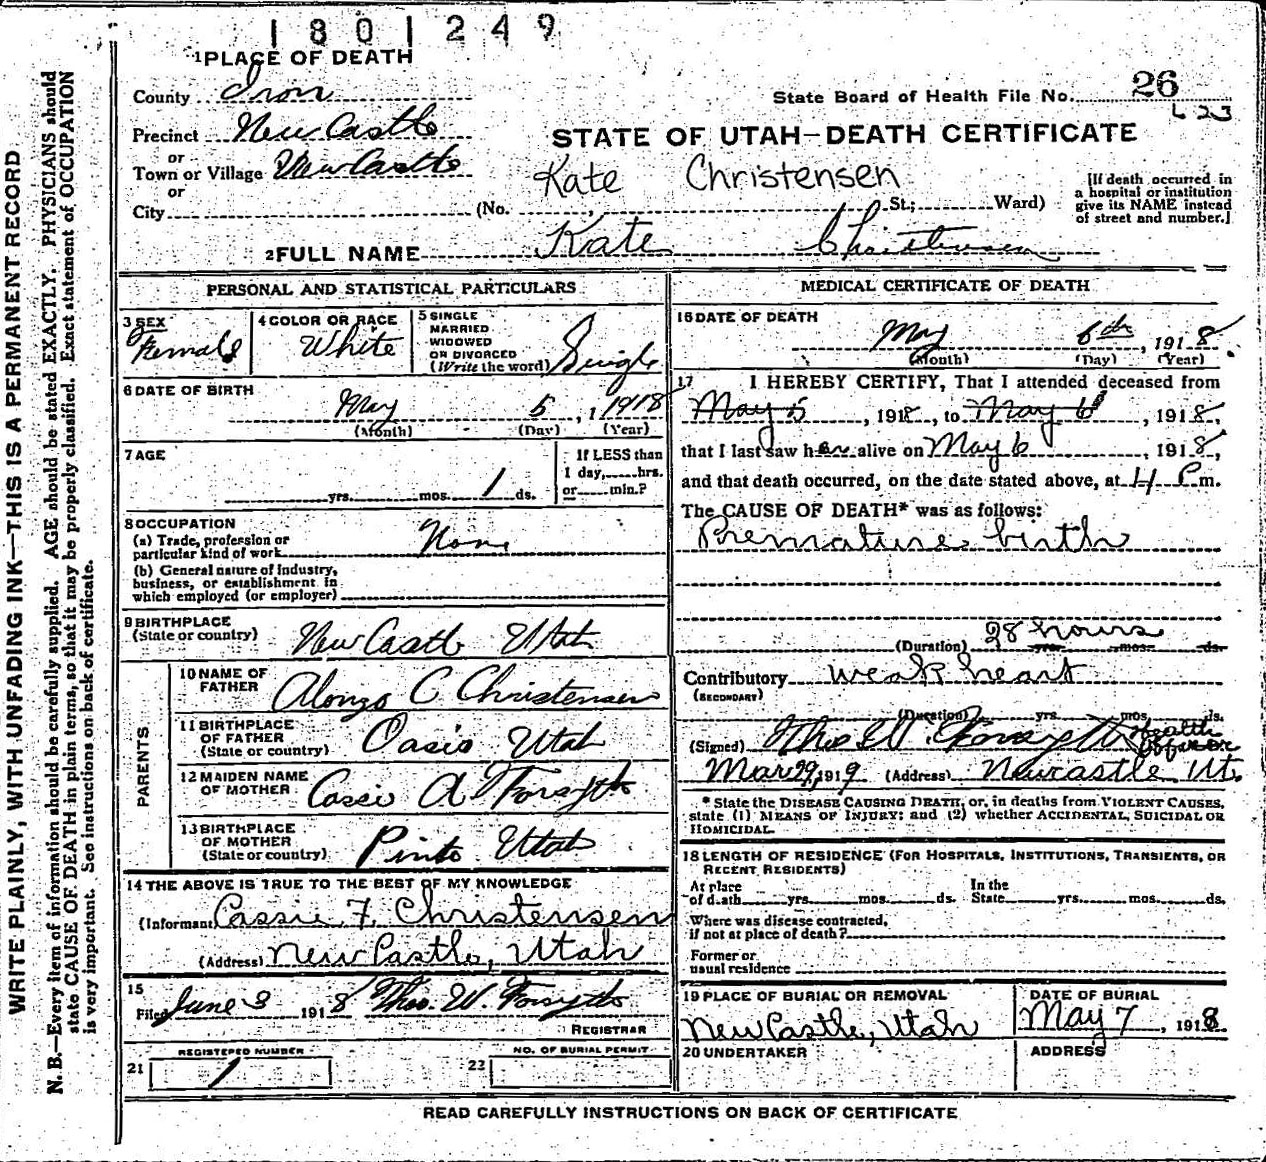 1801249
1 PLACE OF DEATH
County Iron
State Board of Health File No. 26
L 23
Precinct New Castle
STATE OF UTAH—DEATH CERTIFICATE
or
Town or Village New Castle
or
Kate Christensen
City (No. St; Ward)
[If death occurred in
a hospital or institution
give its NAME instead
of street and number.]
2 FULL NAME Kate Christensen
PERSONAL AND STATISTICAL PARTICULARS
3 SEX
Female
4 COLOR OR RACE
White
5 SINGLE
MARRIED
WIDOWED
OR DIVORCED
(Write the word) Single
6 DATE OF BIRTH
May 5, 1 1918
(Month) (Day) (Year)
7 AGE
yrs. mos. 1 ds.
If LESS than
1 day, hrs.
or min.?
8 OCCUPATION
(a) Trade, profession or
particular kind of work None
(b) General nature of Industry,
business, or establishment in
which employed (or employer)
9 BIRTHPLACE
(State or country) New Castle Utah
PARENTS
10 NAME OF
FATHER Alonzo C Christensen
11 BIRTHPLACE
OF FATHER
(State or country) Oasis Utah
12 MAIDEN NAME
OF MOTHER Cassie A Forsyth
13 BIRTHPLACE
OF MOTHER
(State or country) Pinto Utah
14 THE ABOVE IS TRUE TO THE BEST OF MY KNOWLEDGE
(Informant Cassie F. Christensen
(Address) New Castle, Utah
15
Filed June 3 1918 Theo. W. Forsyth
REGISTRAR
REGISTERED NUMBER
21 1
NO. OF BURIAL PERMIT
22
MEDICAL CERTIFICATE OF DEATH
16 DATE OF DEATH
May 6th, 1918
(Month) (Day) (Year)
17 I HEREBY CERTIFY, That I attended deceased from
May 5, 1918, to May 6, 1918,
that I last saw her alive on May 6, 1918,
and that death occurred, on the date stated above, at 4 P m.
The CAUSE OF DEATH* was as follows:
Premature birth
(Duration) 28 hours yrs. mos. ds.
Contributory weak heart
(SECONDARY)
(Duration) yrs. mos. ds.
(Signed) Theo W. Forsyth Health Officer
Mar 29, 1919 (Address) Newcastle Ut.
* State the DISEASE CAUSING DEATH, or, in deaths from VIOLENT CAUSES,
state (1) MEANS OF INJURY; and (2) whether ACCIDENTAL, SUICIDAL OR
HOMICIDAL.
18 LENGTH OF RESIDENCE (FOR HOSPITALS, INSTITUTIONS, TRANSIENTS, OR
RECENT RESIDENTS)
At place
of death yrs. mos. ds.
In the
State yrs. mos. ds.
Where was disease contracted,
if not at place of death?
Former or
usual residence
19 PLACE OF BURIAL OR REMOVAL
New Castle, Utah
DATE OF BURIAL
May 7, 1918
20 UNDERTAKER
ADDRESS
READ CAREFULLY INSTRUCTIONS ON BACK OF CERTIFICATE
WRITE PLAINLY, WITH UNFADING INK—THIS IS A PERMANENT RECORD
N. B.—Every item of information should be carefully supplied. AGE should be stated EXACTLY. PHYSICIANS should
state CAUSE OF DEATH in plain terms, so that it may be properly classified. Exact statement of OCCUPATION
is very important. See instructions on back of certificate.